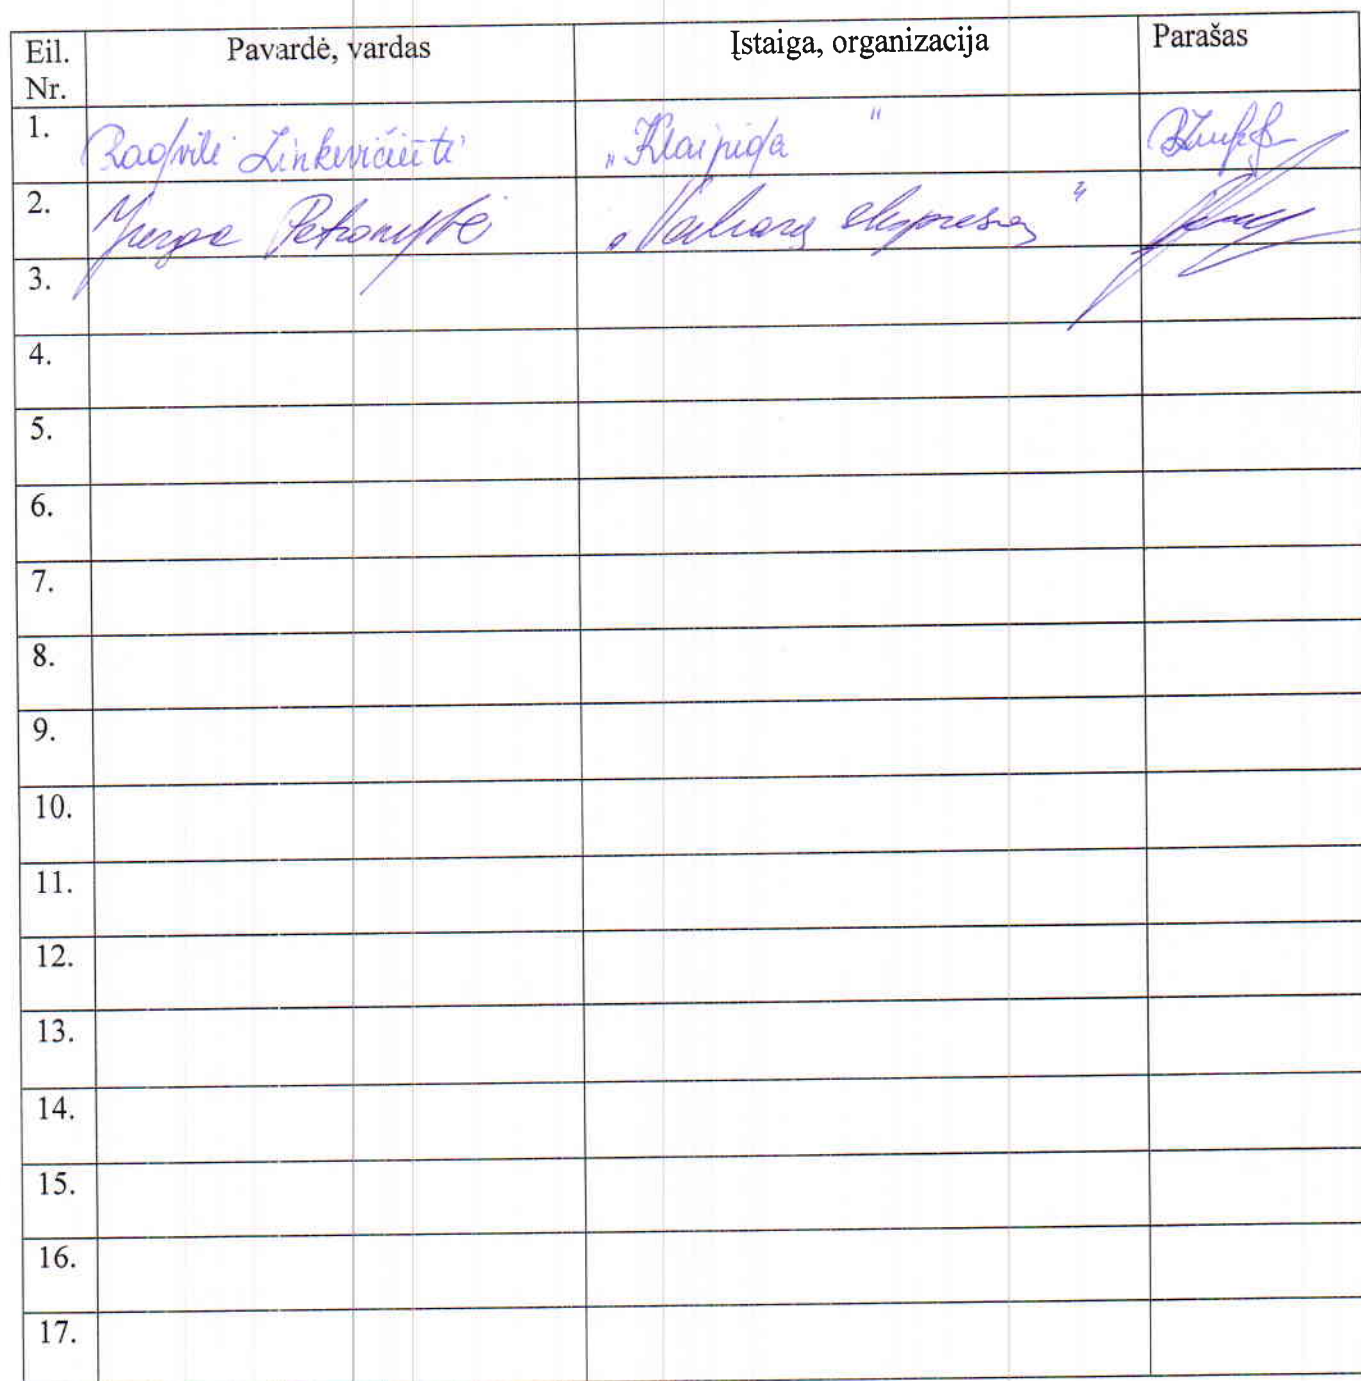 Eil. Nr. Pavardė, vardas Įstaiga, organizacija Parašas
1. Radvilė Linkevičiūtė „Klaipėda"
2. Jurga Petronytė „Vakarų ekspresas"
3.
4.
5.
6.
7.
8.
9.
10.
11.
12.
13.
14.
15.
16.
17.